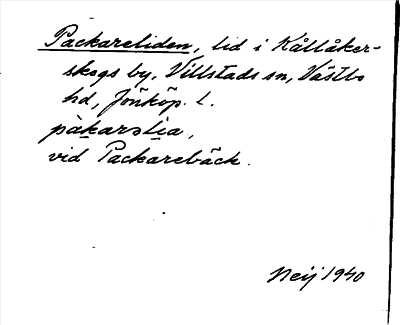 Packareliden, lid i Kållåker-
skogs by, Villstads sn, Västbo
hd, Jönköp. l.
pàkarəlia,
vid Packarebäck.
Neij 1940